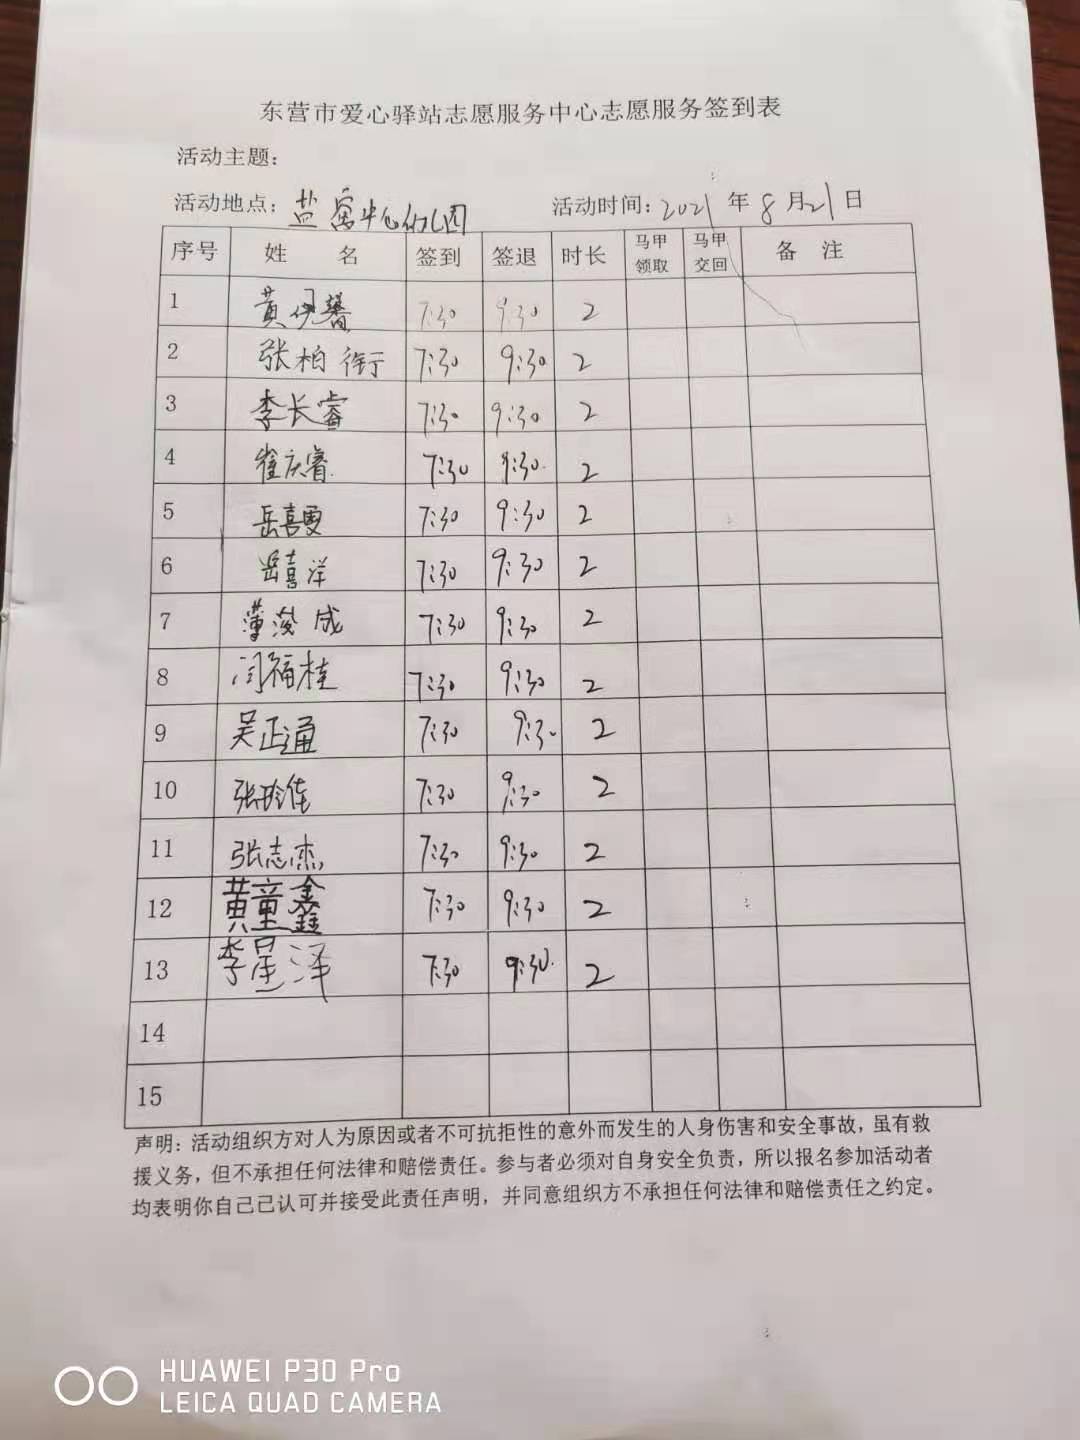 东营市爱心驿站志愿服务中心志愿服务签到表
活动主题：
活动地点：盐窝中心幼儿园 活动时间：2021年8月21日
序号 姓 名 签到 签退 时长 马甲领取 马甲交回 备 注
1 黄伊馨 7:30 9:30 2
2 张柏衔 7:30 9:30 2
3 李长睿 7:30 9:30 2
4 崔庆睿 7:30 9:30 2
5 岳喜雯 7:30 9:30 2
6 岳喜洋 7:30 9:30 2
7 薄浚成 7:30 9:30 2
8 闫福桂 7:30 9:30 2
9 吴正通 7:30 9:30 2
10 张玲佳 7:30 9:30 2
11 张志杰 7:30 9:30 2
12 黄童鑫 7:30 9:30 2
13 李星泽 7:30 9:30 2
14
15
声明：活动组织方对人为原因或者不可抗拒性的意外而发生的人身伤害和安全事故，虽有救
援义务，但不承担任何法律和赔偿责任。参与者必须对自身安全负责，所以报名参加活动者
均表明你自己己认可并接受此责任声明，并同意组织方不承担任何法律和赔偿责任之约定。
HUAWEI P30 Pro
LEICA QUAD CAMERA